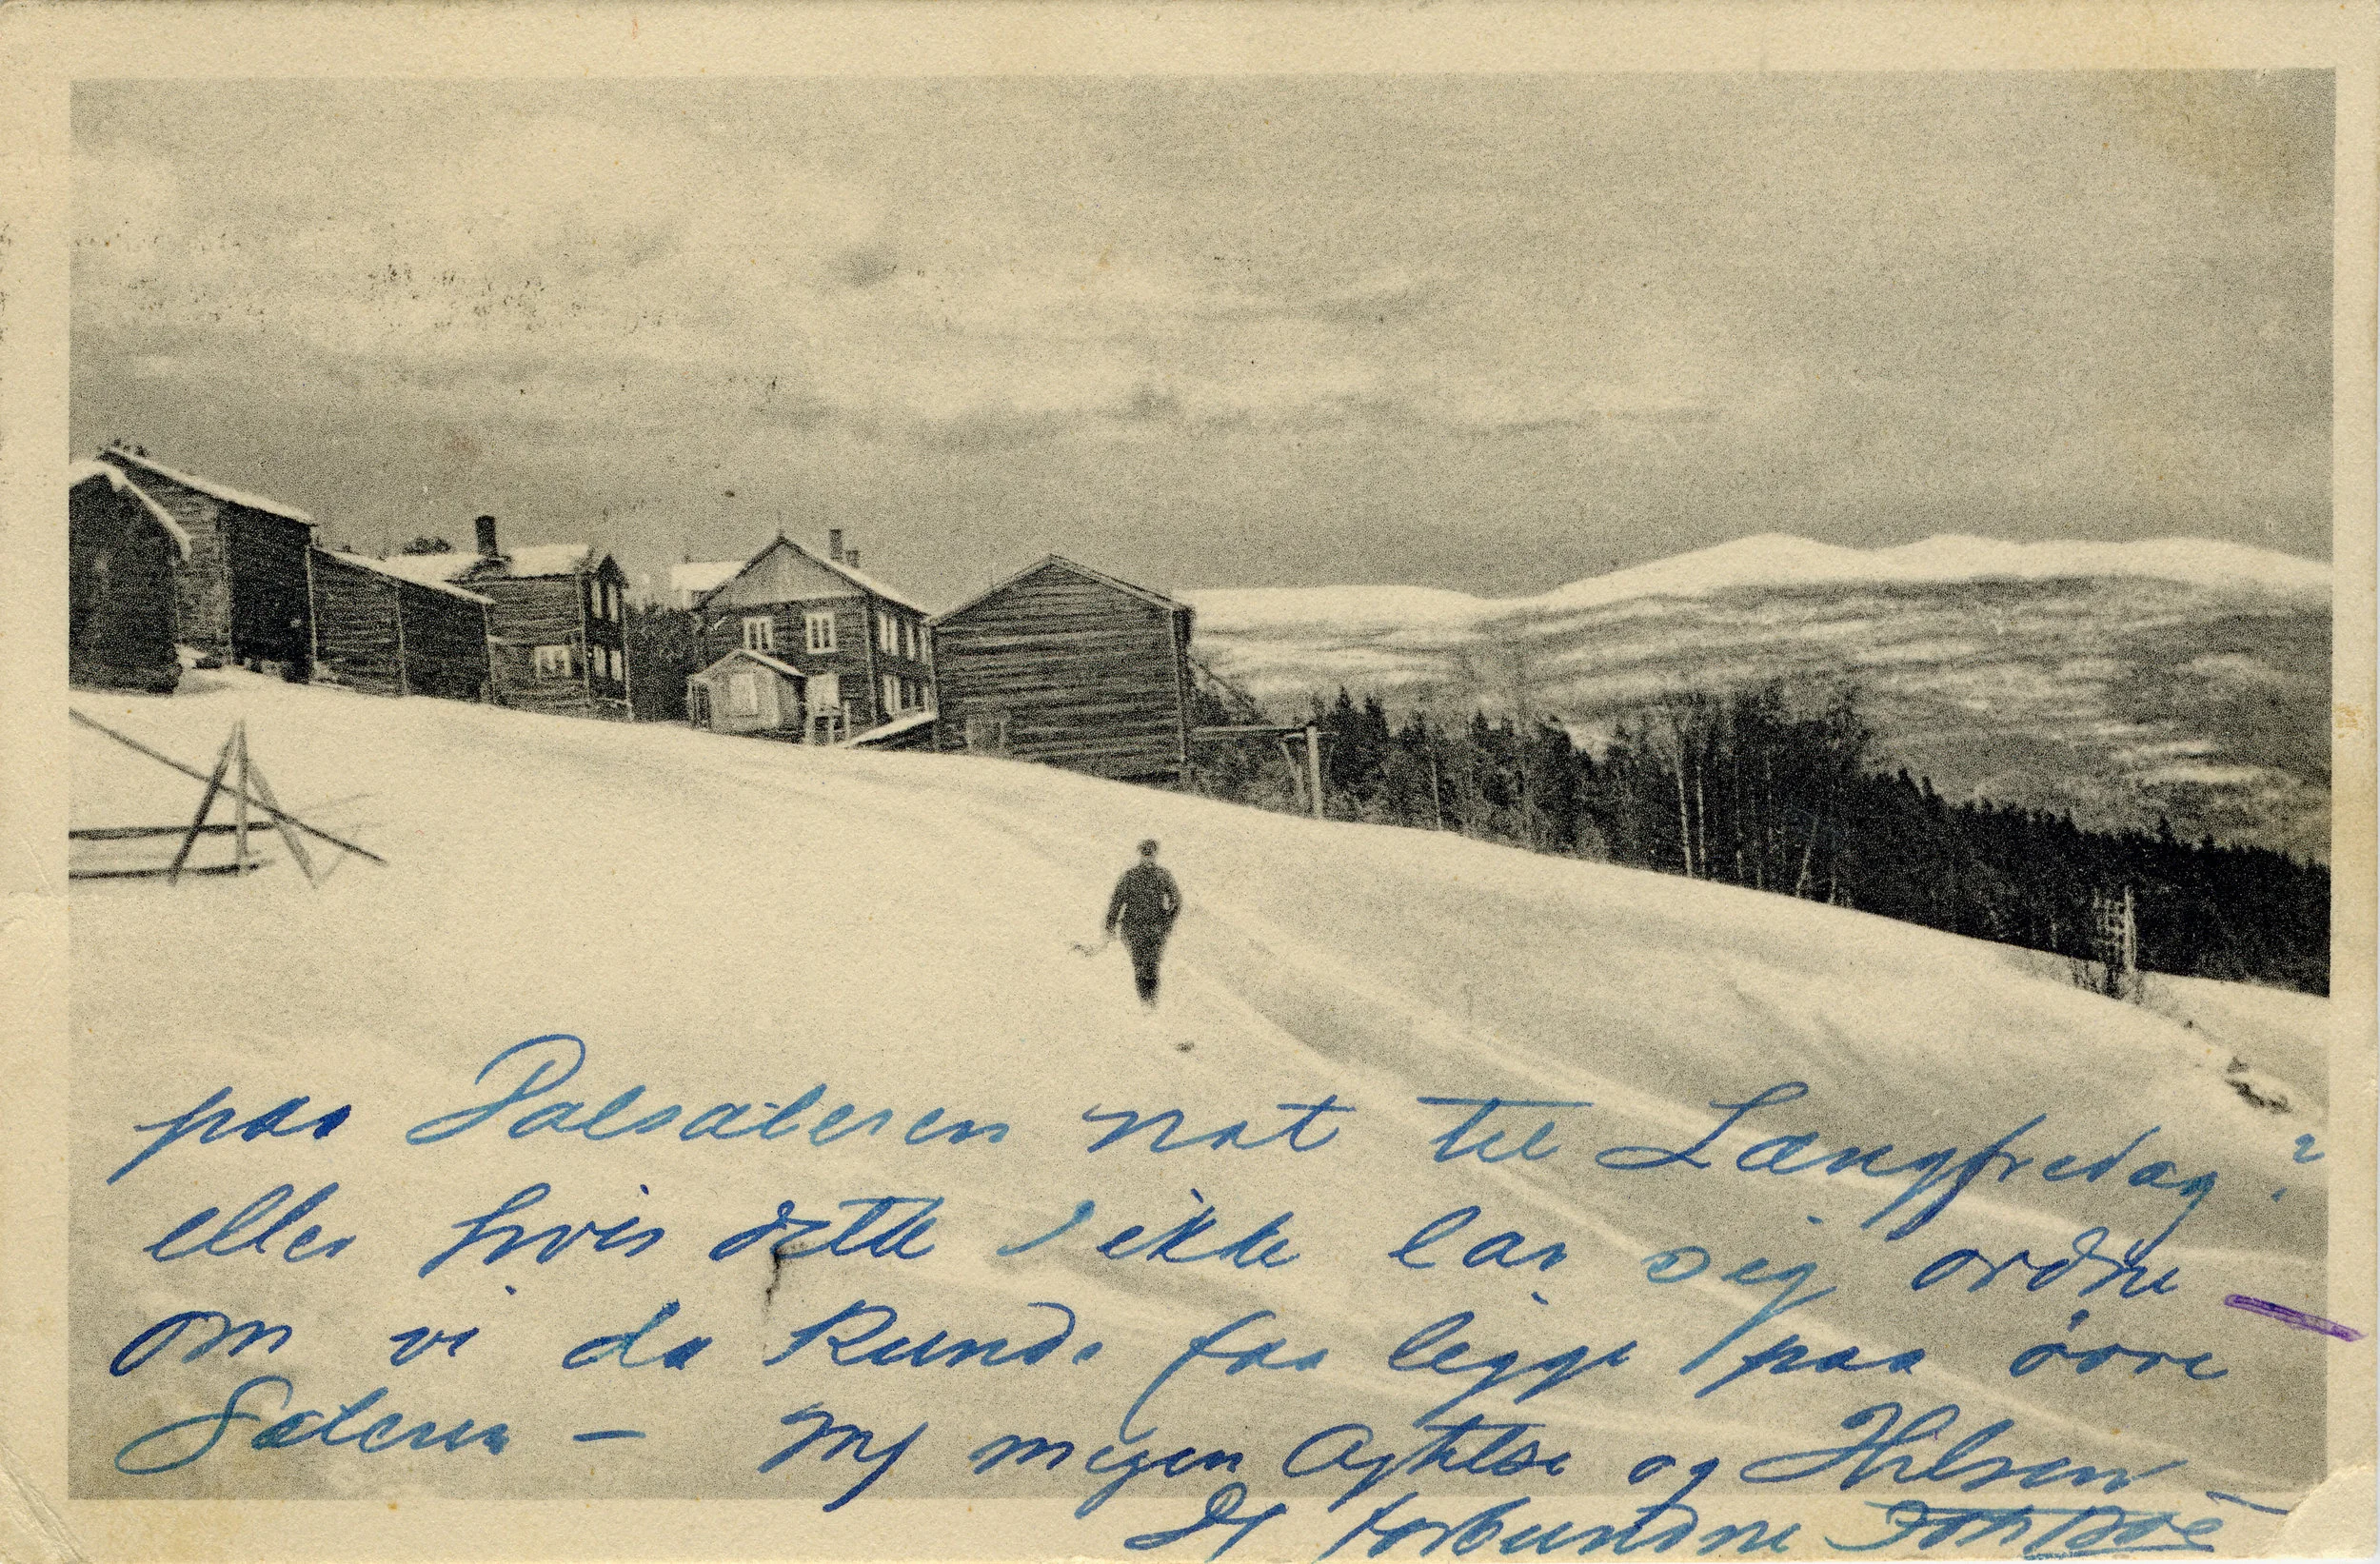 paa Palsæteren nat til Langfredag?
eller hvis dette ikke lar sig ordne
om vi da kunde faa ligge paa øvre
Sæteren – Mf megen Agtelse og Hilsen –
Df forbundne